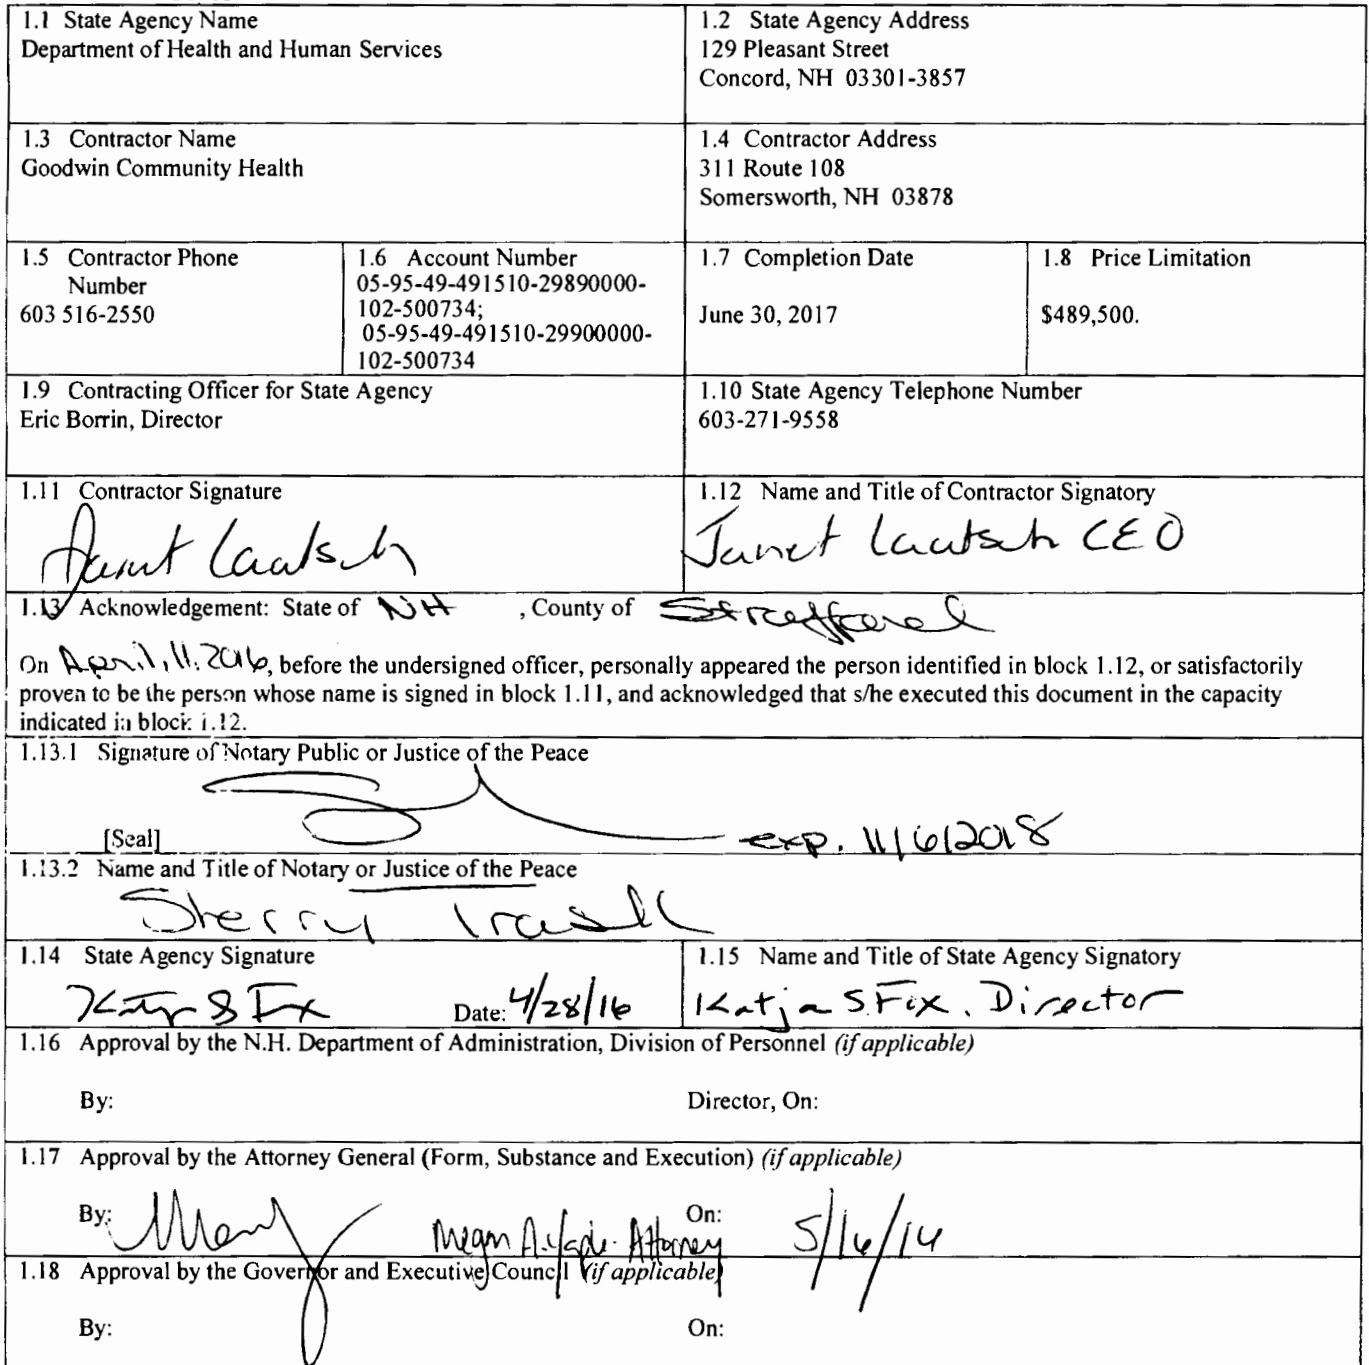 1.1 State Agency Name
Department of Health and Human Services
1.2 State Agency Address
129 Pleasant Street
Concord, NH 03301-3857
1.3 Contractor Name
Goodwin Community Health
1.4 Contractor Address
311 Route 108
Somersworth, NH 03878
1.5 Contractor Phone
Number
603 516-2550
1.6 Account Number
05-95-49-491510-29890000-
102-500734;
05-95-49-491510-29900000-
102-500734
1.7 Completion Date
June 30, 2017
1.8 Price Limitation
$489,500.
1.9 Contracting Officer for State Agency
Eric Borrin, Director
1.10 State Agency Telephone Number
603-271-9558
1.11 Contractor Signature
Janet Laatsch
1.12 Name and Title of Contractor Signatory
Janet Laatsch CEO
1.13 Acknowledgement: State of NH , County of Strafford
On April, 11, 2016, before the undersigned officer, personally appeared the person identified in block 1.12, or satisfactorily
proven to be the person whose name is signed in block 1.11, and acknowledged that s/he executed this document in the capacity
indicated in block 1.12.
1.13.1 Signature of Notary Public or Justice of the Peace
[Seal] exp. 11/6/2018
1.13.2 Name and Title of Notary or Justice of the Peace
Sherry
1.14 State Agency Signature
Date: 4/28/16
1.15 Name and Title of State Agency Signatory
Katja S. Fox, Director
1.16 Approval by the N.H. Department of Administration, Division of Personnel (if applicable)
By: Director, On:
1.17 Approval by the Attorney General (Form, Substance and Execution) (if applicable)
By: Megan A. Attorney On:
1.18 Approval by the Governor and Executive Council (if applicable)
By: On: